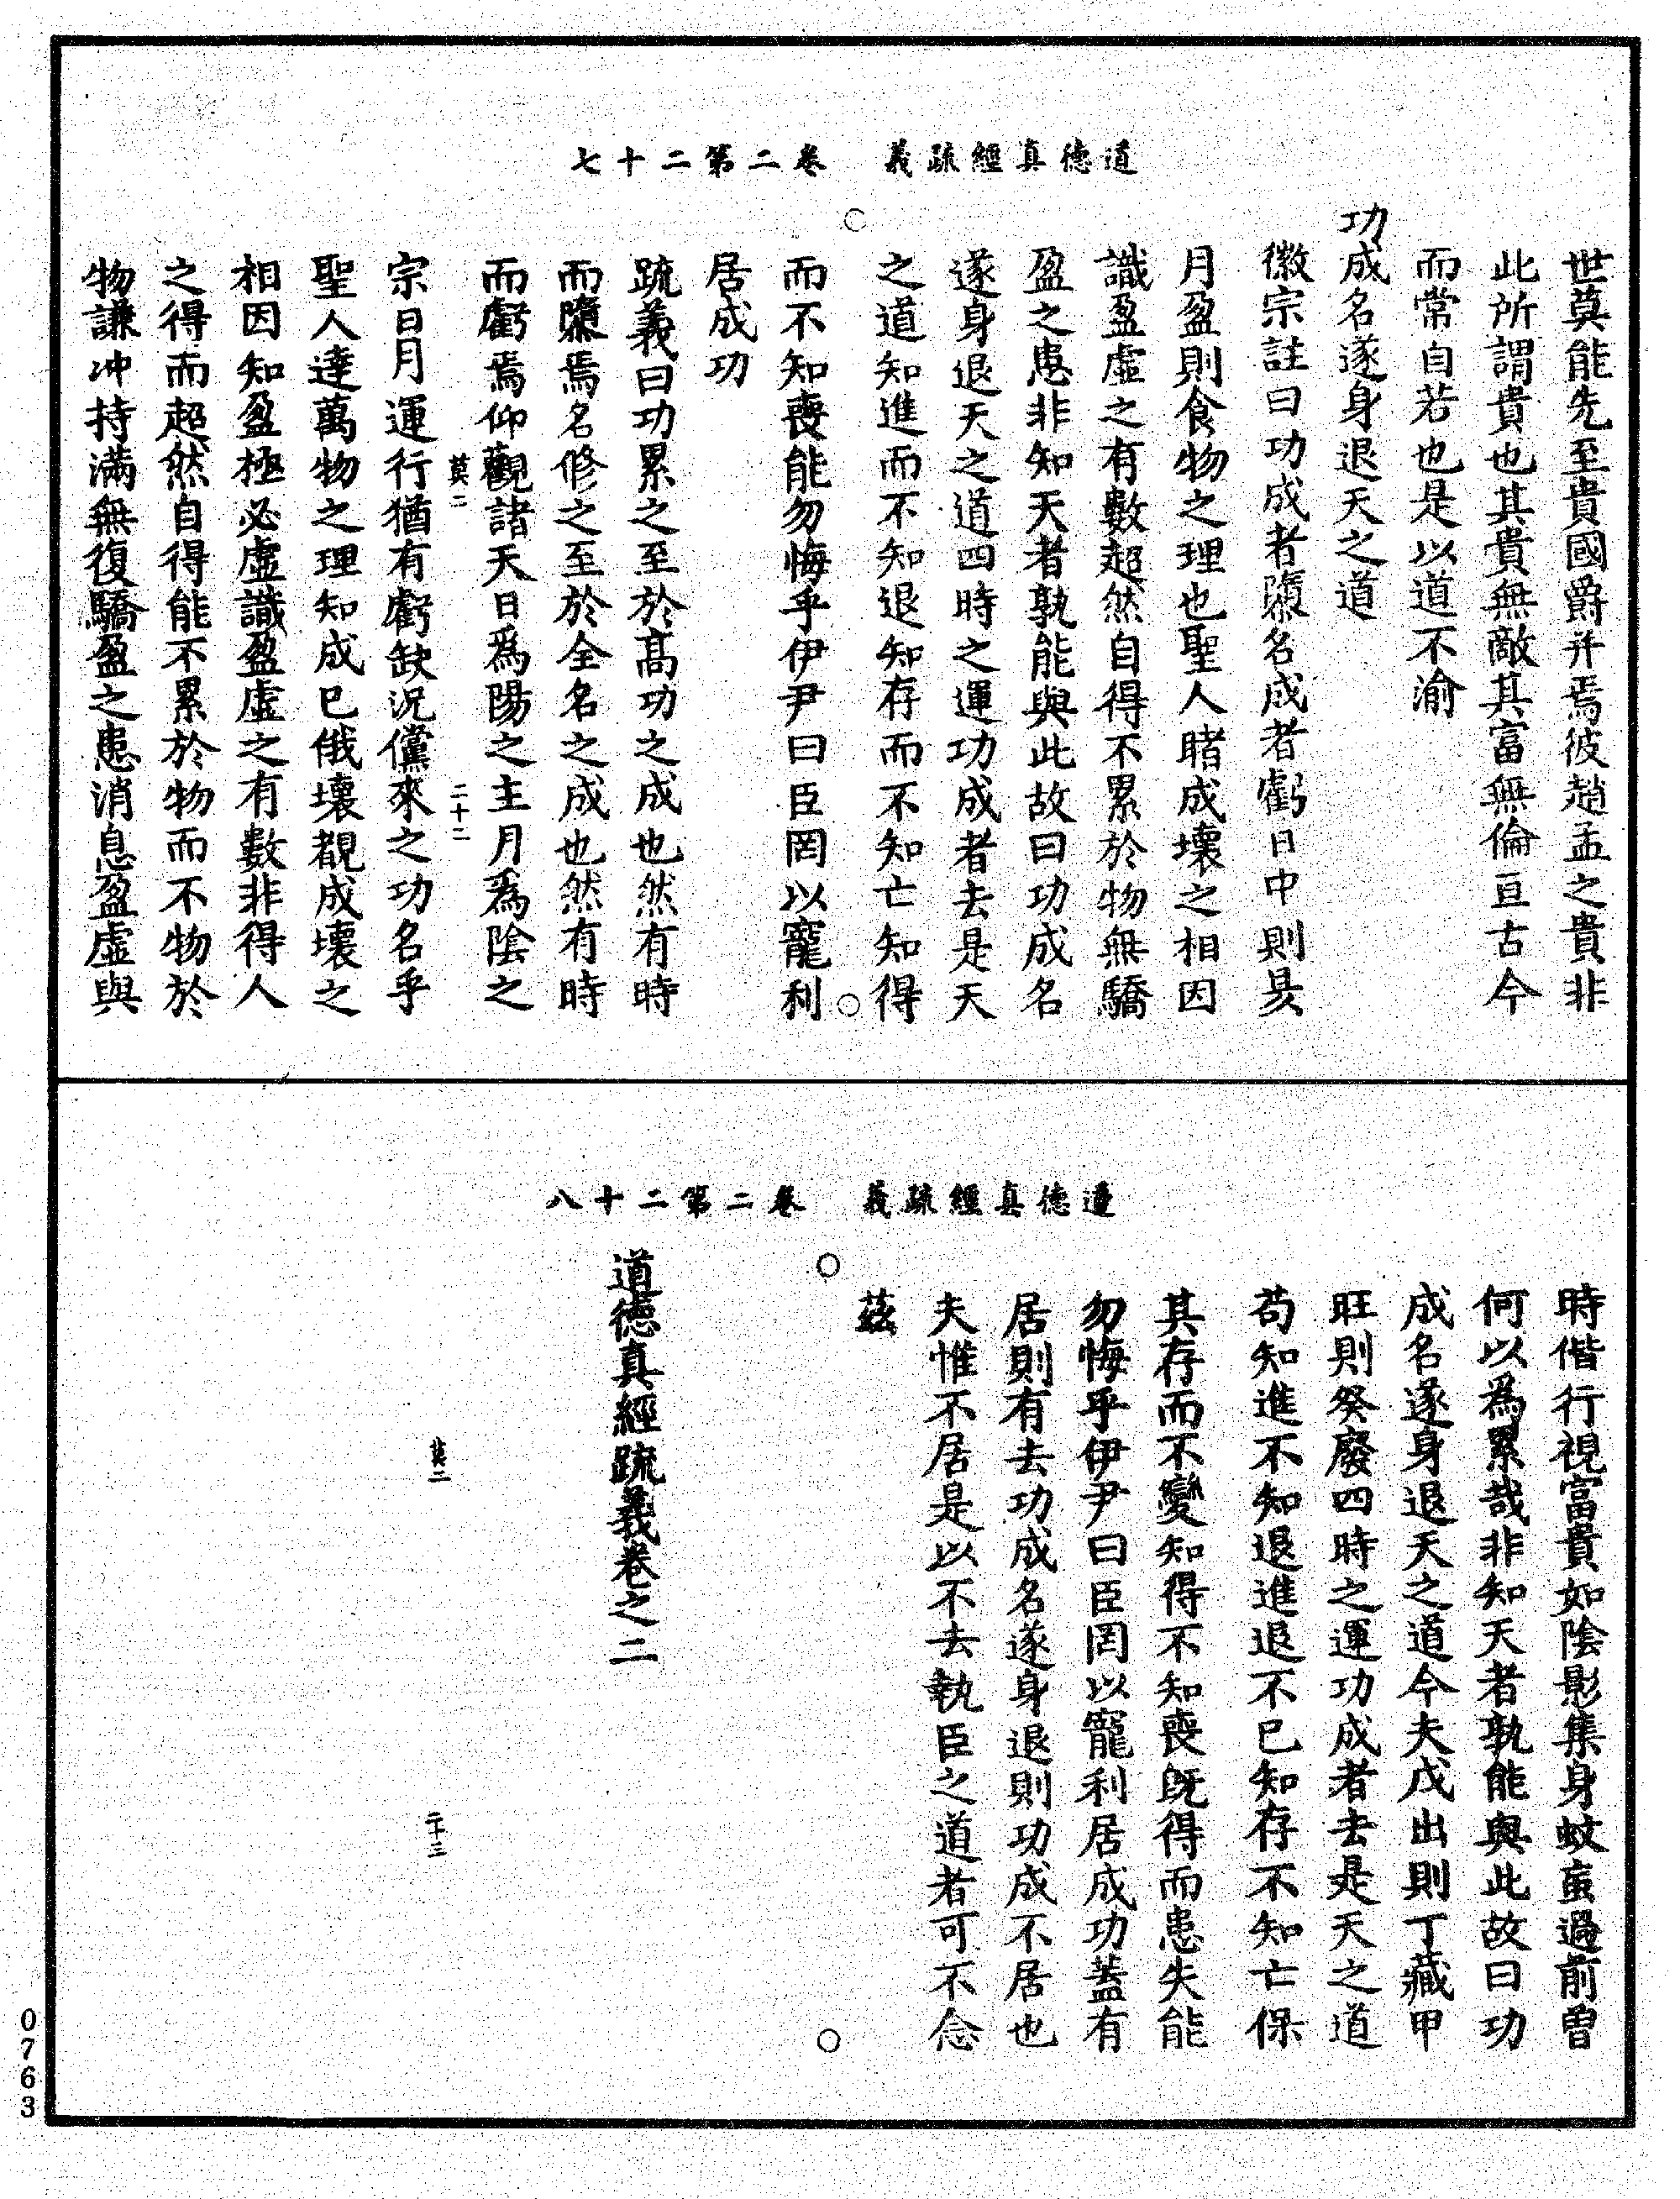 道德真經疏義　卷二第二十七
世莫能先至貴國爵并焉彼趙孟之貴非
此所謂貴也其貴無敵其富無倫亘古今
而常自若也是以道不渝
功成名遂身退天之道
徽宗註曰功成者隳名成者虧日中則昃
月盈則食物之理也聖人睹成壞之相因
識盈虛之有數超然自得不累於物無驕
盈之患非知天者孰能與此故曰功成名
遂身退天之道四時之運功成者去是天
之道知進而不知退知存而不知亡知得
而不知喪能勿悔乎伊尹曰臣罔以寵利
居成功
疏義曰功累之至於高功之成也然有時
而隳焉名修之至於全名之成也然有時
而虧焉仰觀諸天日為陽之主月為陰之
莫二　二十二
宗日月運行猶有虧缺況儻來之功名乎
聖人達萬物之理知成已俄壞覩成壞之
相因知盈極必虛識盈虛之有數非得人
之得而超然自得能不累於物而不物於
物謙冲持滿無復驕盈之患消息盈虛與
道德真經疏義　卷二第二十八
時偕行視富貴如陰影集身蚊䖟過前曾
何以為累哉非知天者孰能與此故曰功
成名遂身退天之道今夫戊出則丁藏甲
旺則癸廢四時之運功成者去是天之道
苟知進不知退進退不已知存不知亡保
其存而不變知得不知喪既得而患失能
勿悔乎伊尹曰臣罔以寵利居成功蓋有
居則有去功成名遂身退則功成不居也
夫惟不居是以不去執臣之道者可不念
茲
道德真經疏義卷之二
莫二　二十三
0763